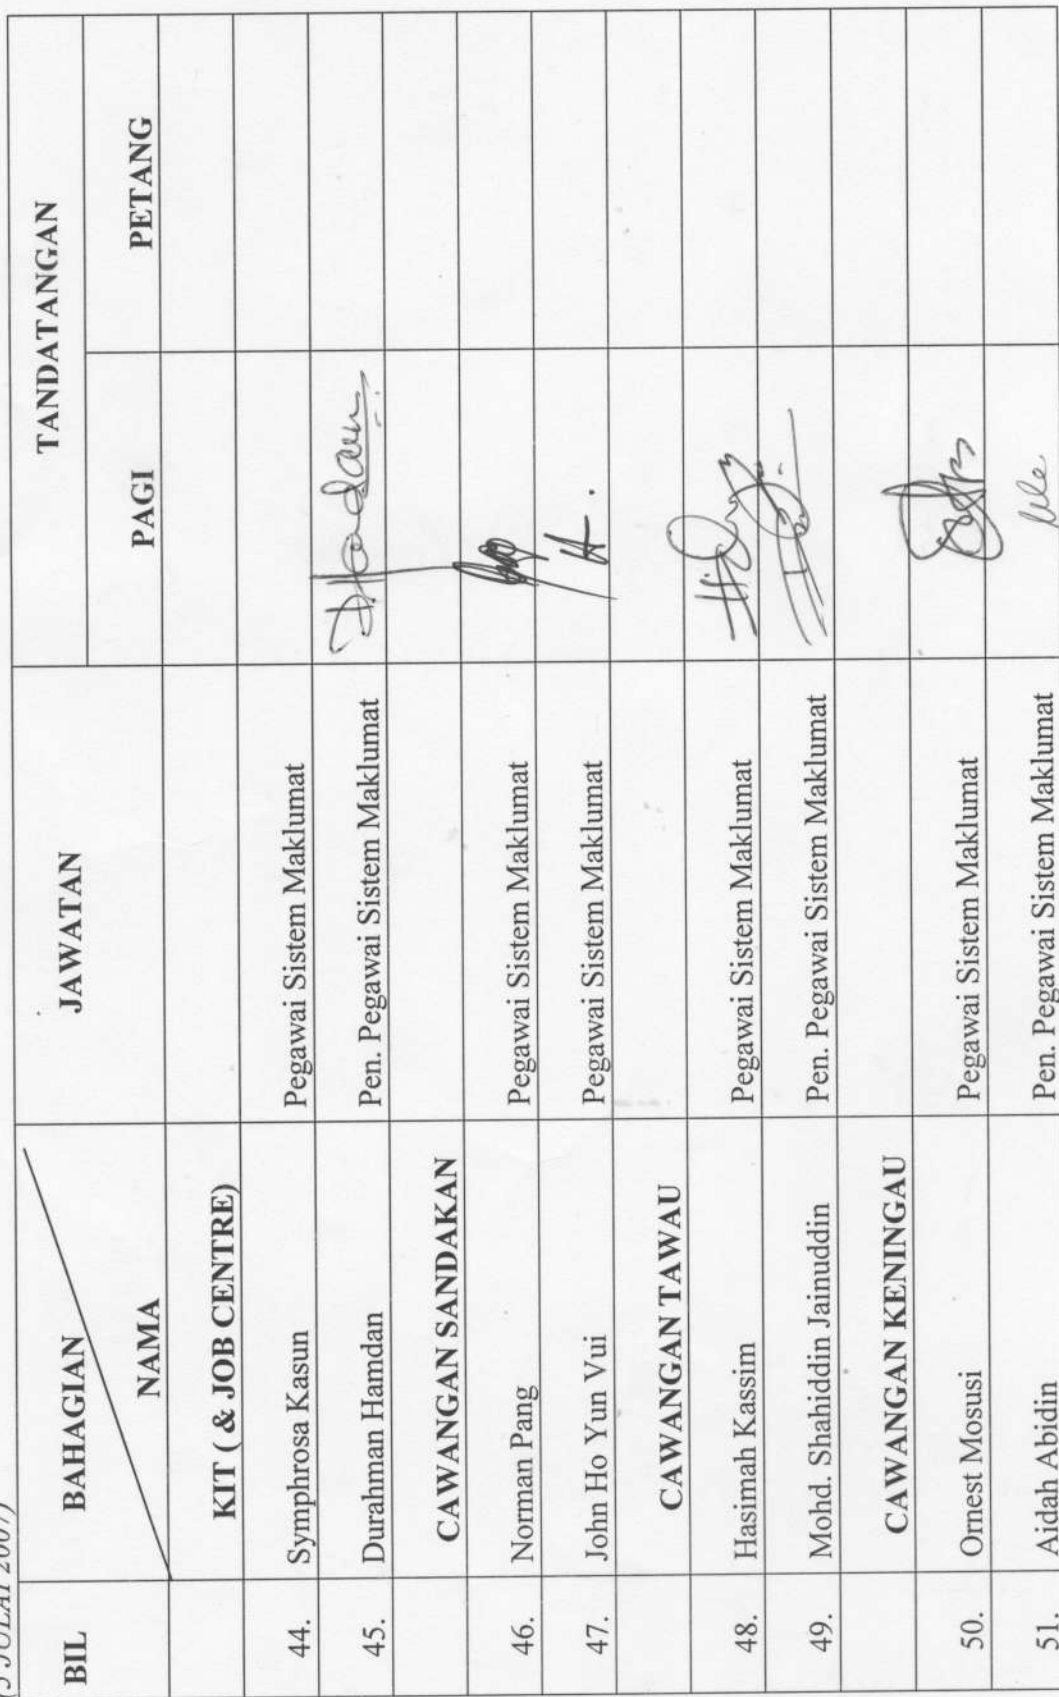 5 JULAI 2007)
BIL BAHAGIAN NAMA JAWATAN TANDATANGAN
PAGI PETANG
KIT ( & JOB CENTRE)
44. Symphrosa Kasun Pegawai Sistem Maklumat
45. Durahman Hamdan Pen. Pegawai Sistem Maklumat
CAWANGAN SANDAKAN
46. Norman Pang Pegawai Sistem Maklumat
47. John Ho Yun Vui Pegawai Sistem Maklumat
CAWANGAN TAWAU
48. Hasimah Kassim Pegawai Sistem Maklumat
49. Mohd. Shahiddin Jainuddin Pen. Pegawai Sistem Maklumat
CAWANGAN KENINGAU
50. Ornest Mosusi Pegawai Sistem Maklumat
51. Aidah Abidin Pen. Pegawai Sistem Maklumat